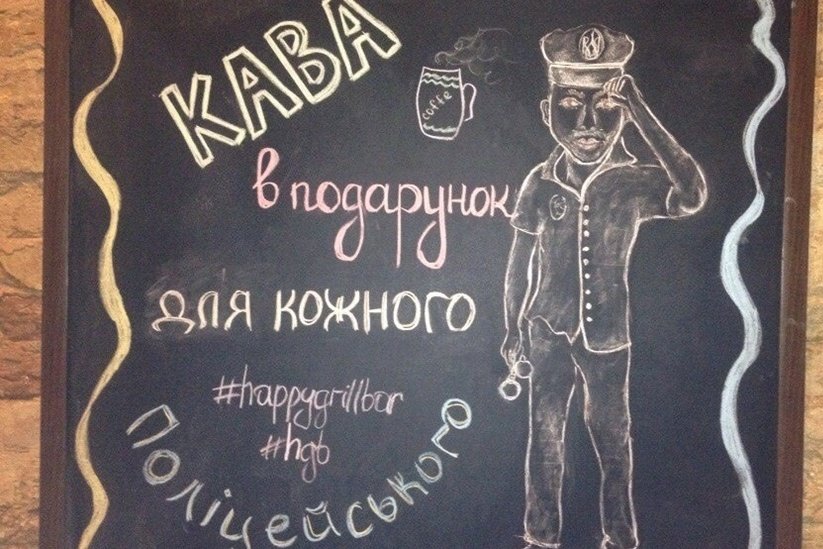 КАВА
coffe
в подарунок
для кожного
#happygrillbar
#hgb
Поліцейського